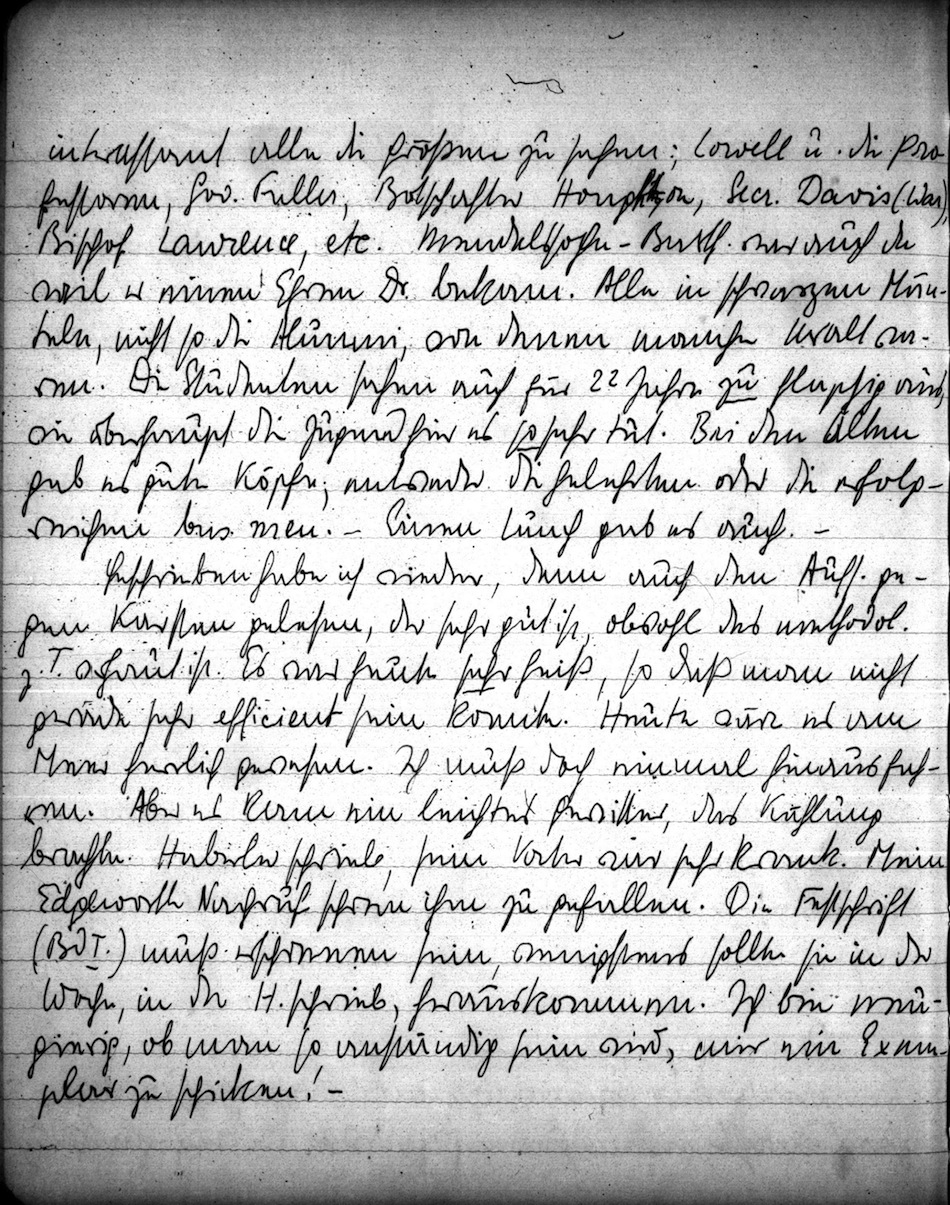 interessant alle die Größen zu sehen; Lowell u. die Pro-
fessoren, Gov. Fuller, Botschafter Houghton, Secr. Davis (War)
Bischof Lawrence, etc. Mendelssohn-Barth. war auch da
weil er einen Ehren Dr. bekam. Alle in schwarzen Män-
teln, nicht so die Alumni, von denen manche uralt wa-
ren. Die Studenten sehen auch für 22 Jahre zu flapsig aus,
wie überhaupt die Jugend hier es so sehr tut. Bei den Alten
gab es gute Köpfe; entweder die Gelehrten oder die erfolg-
reichen bus. men. – Einen Lunch gab es auch. –
Geschrieben habe ich wieder, dann auch den Aufs. ge-
gen Karsten gelesen, der sehr gut ist, obwohl das methodol.
z.T. ist. Es war heute sehr heiß, so daß man nicht
gerade sehr efficient sein konnte. Heute wäre es am
Meer herrlich gewesen. Ich muß doch einmal hinausfah-
ren. Aber es kam ein leichtes Gewitter, das Kühlung
brachte. Haberler schrieb, sein Vater wär sehr krank. Mein
Edgeworth Nachruf schien ihm zu gefallen. Die Festschrift
(BdT.) muß erschienen sein, wenigstens sollte sie in der
Woche, in der H. schrieb, herauskommen. Ich bin neu-
gierig, ob man so anständig sein wird, mir ein Exem-
plar zu schicken! –